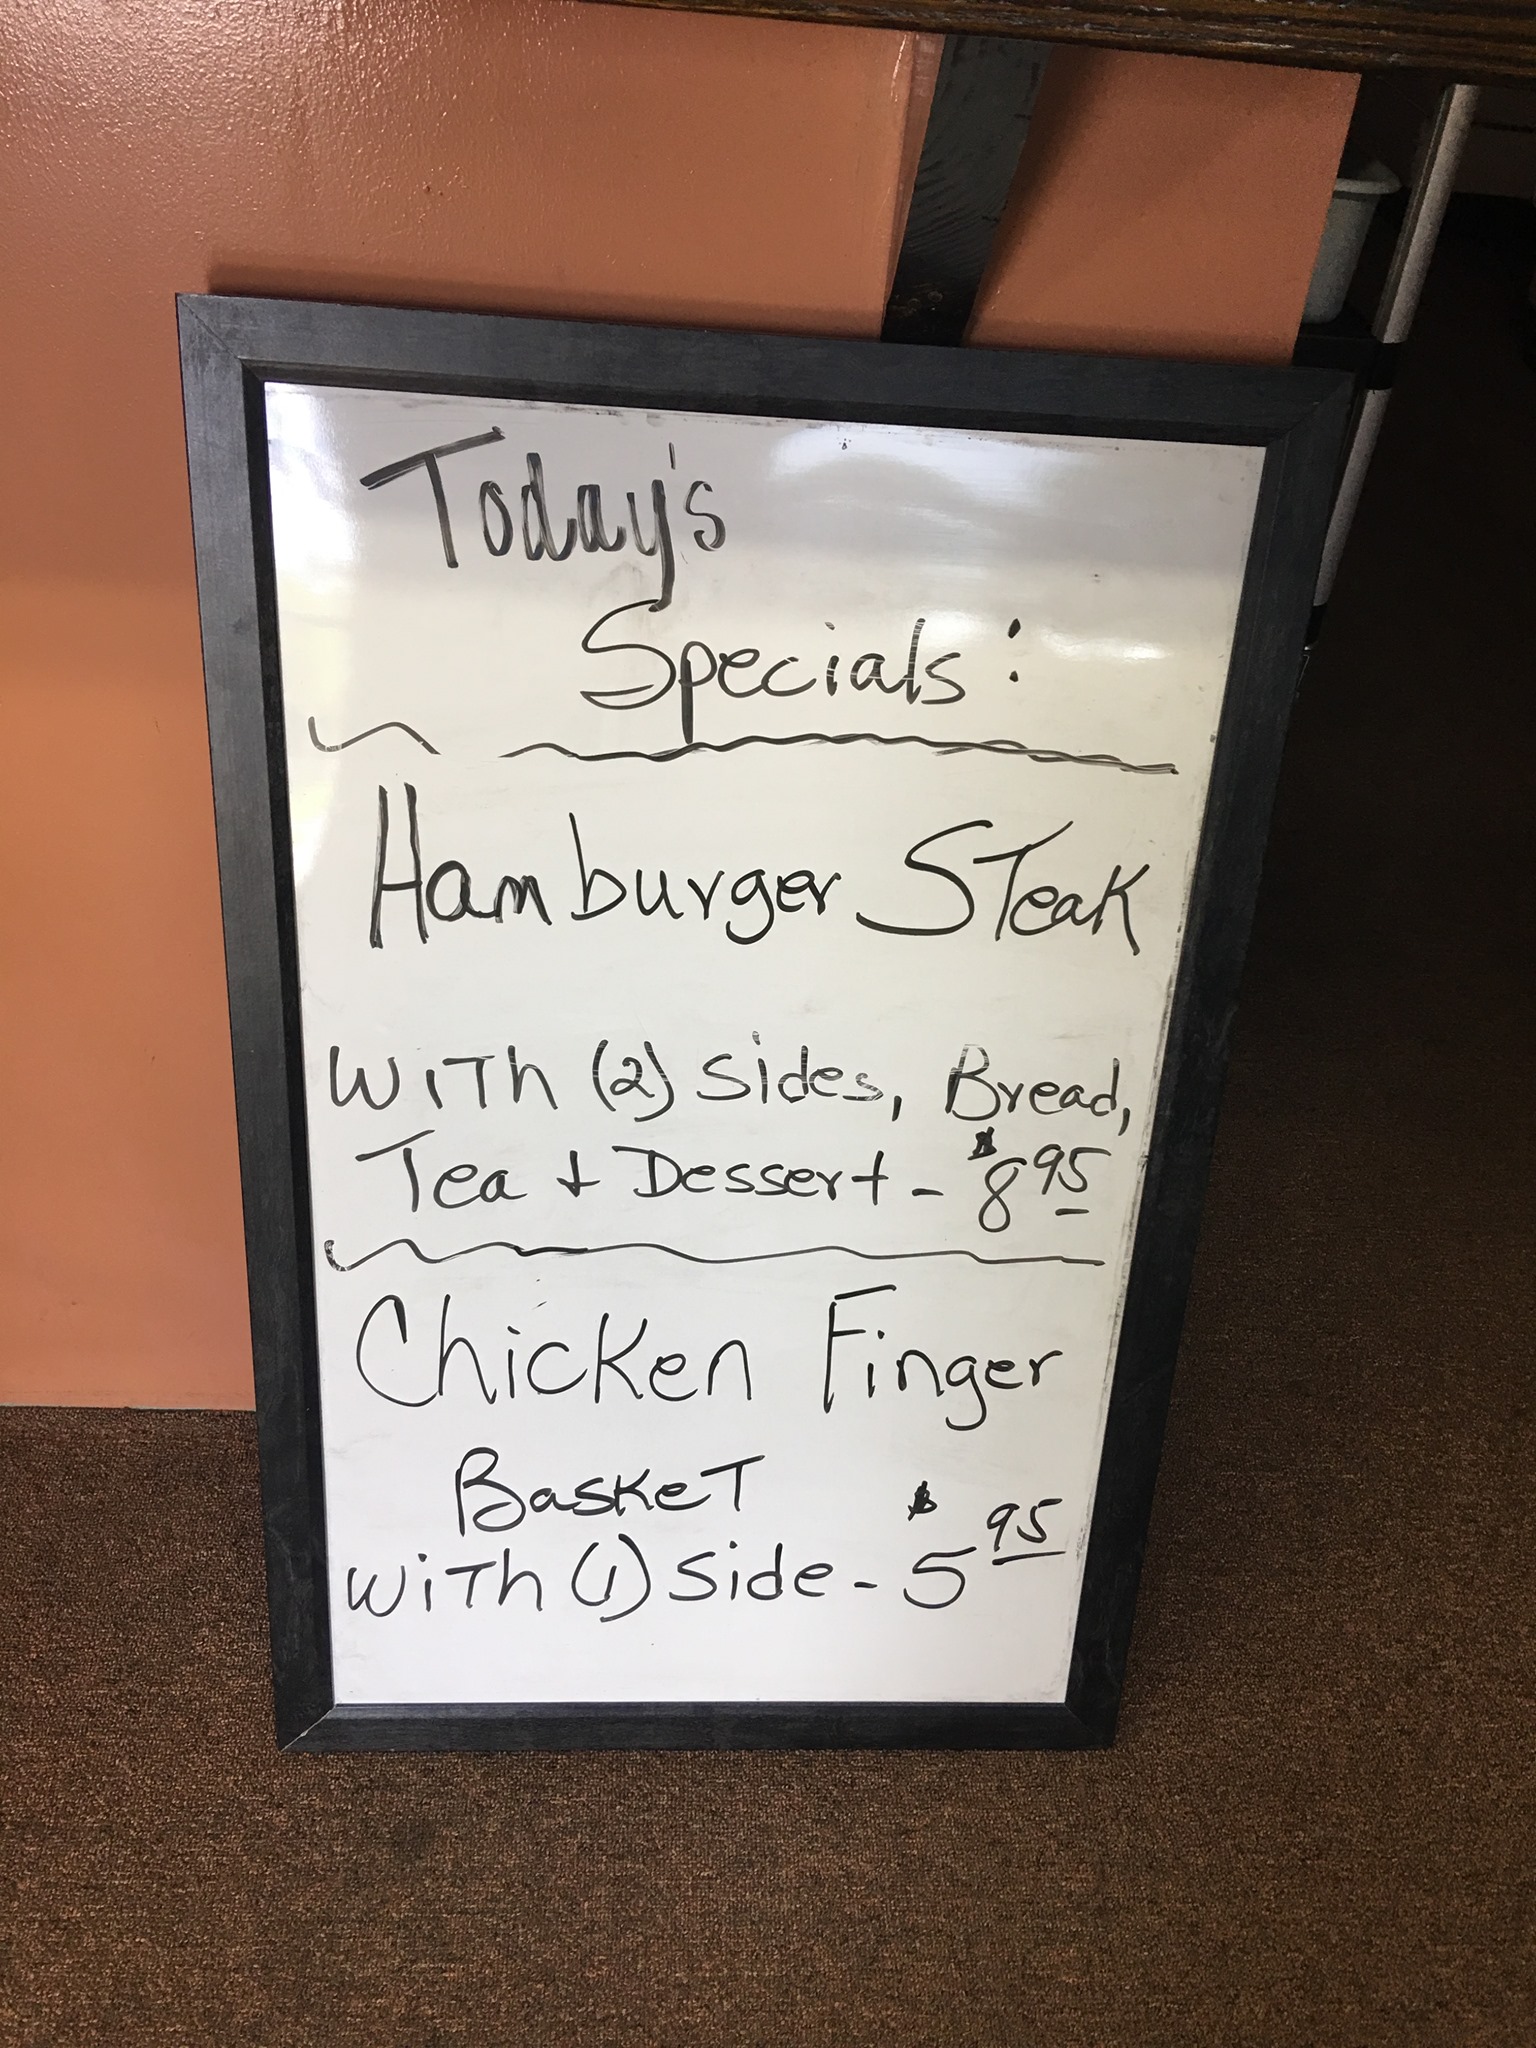 Today's
Specials:
Hamburger Steak
with (2) sides, Bread,
Tea + Dessert - $8 95
Chicken Finger
Basket
with (1) side - $5 95